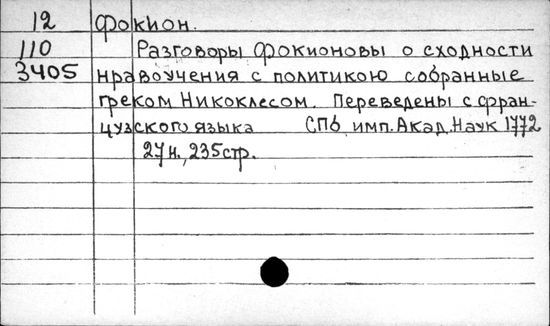 12 Фокион.
110 Разговоры Фокионовы о сходности
3405 нравоучения с политикою собранные
греком Никоклесом. Переведены с фран-
цузского языка СПб имп. Акад. Наук 1772
27н., 235стр.